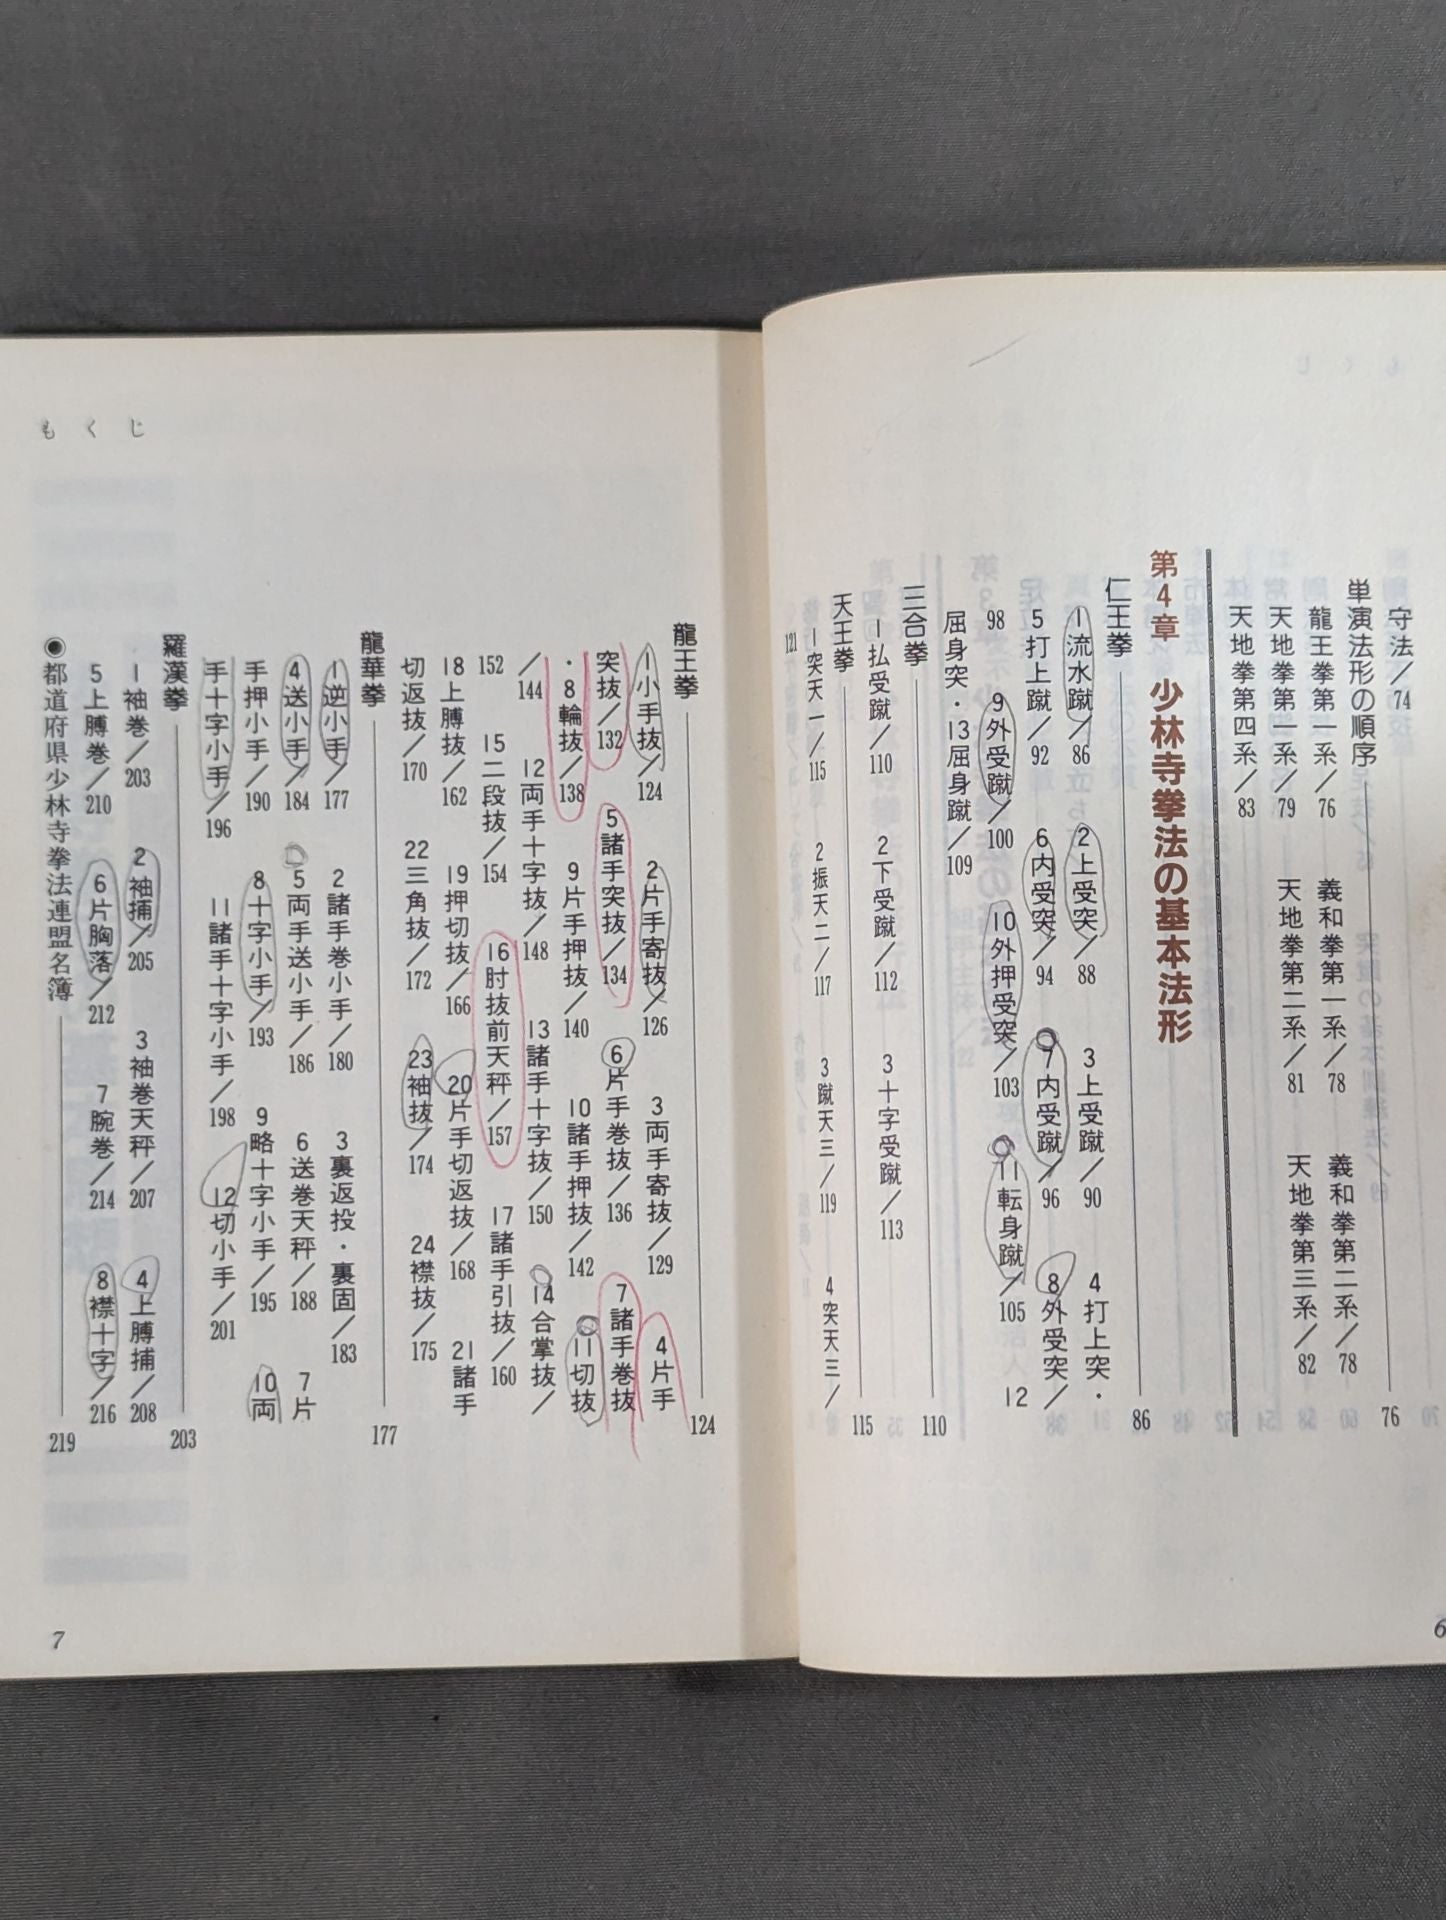 守法／74
単演法形の順序 76
龍王拳第一系／76 義和拳第一系／78 義和拳第二系／78
天地拳第一系／79 天地拳第二系／81 天地拳第三系／82
天地拳第四系／83
第4章 少林寺拳法の基本法形
仁王拳 86
1流水蹴／86 2上受突／88 3上受蹴／90 4打上突・
5打上蹴／92 6内受突／94 7内受蹴／96 8外受突／
98 9外受蹴／100 10外押受突／103 11転身蹴／105 12
屈身突・13屈身蹴／109
三合拳 110
1払受蹴／110 2下受蹴／112 3十字受蹴／113
天王拳 115
1突天一／115 2振天二／117 3蹴天三／119 4突天三／
121
6
もくじ
龍王拳 124
1小手抜／124 2片手寄抜／126 3両手寄抜／129 4片手
突抜／132 5諸手突抜／134 6片手巻抜／136 7諸手巻抜
・8輪抜／138 9片手押抜／140 10諸手押抜／142 11切抜
／144 12両手十字抜／148 13諸手十字抜／150 14合掌抜／
152 15二段抜／154 16肘抜前天秤／157 17諸手引抜／160
18上膊抜／162 19押切抜／166 20片手切返抜／168 21諸手
切返抜／170 22三角抜／172 23袖抜／174 24襟抜／175
龍華拳 177
1逆小手／177 2諸手巻小手／180 3裏返投・裏固／183
4送小手／184 5両手送小手／186 6送巻天秤／188 7片
手押小手／190 8十字小手／193 9略十字小手／195 10両
手十字小手／196 11諸手十字小手／198 12切小手／201
羅漢拳 203
1袖巻／203 2袖捕／205 3袖巻天秤／207 4上膊捕／208
5上膊巻／210 6片胸落／212 7腕巻／214 8襟十字／216
◉都道府県少林寺拳法連盟名簿 219
7